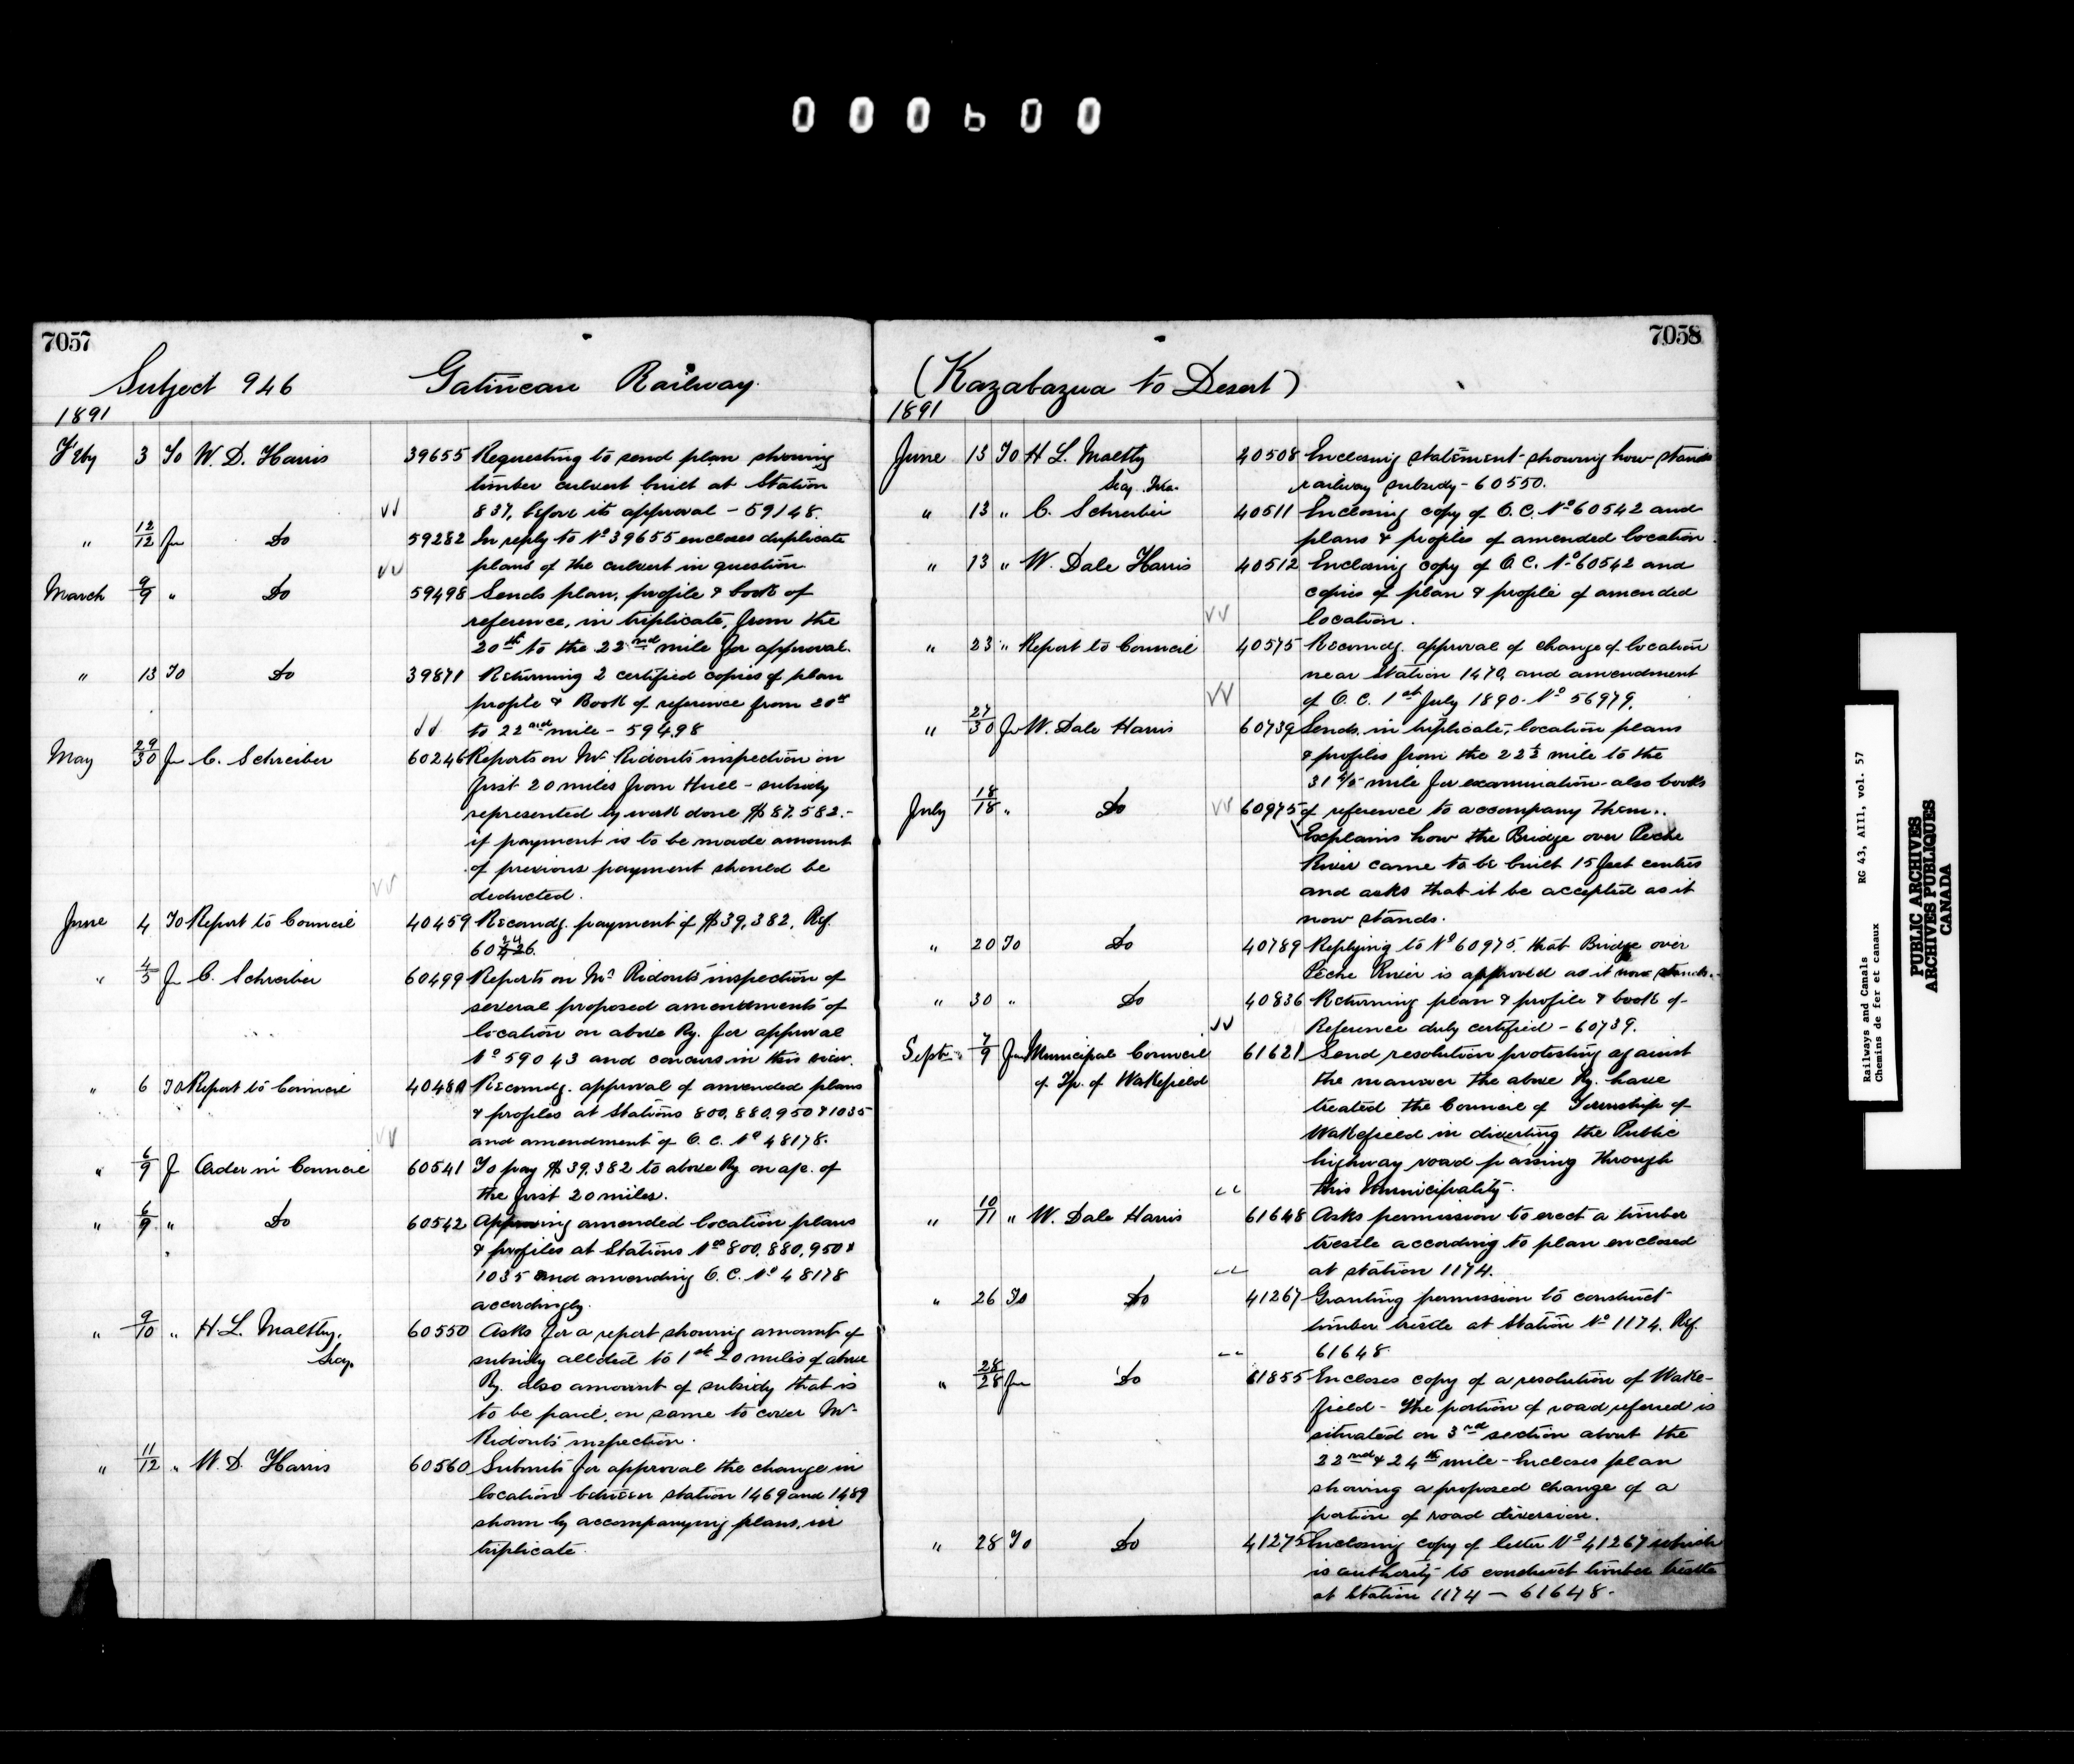 000600
7057
Subject 946 Gatineau Railway.
1891
F'by 3 To W. D. Harris 39655 Requesting to send plan showing
timber culvert built at Station
837, before its approval - 59148.
" 12/12 Fm Do 59282 In reply to No 39655 encloses duplicate
plans of the culvert in question
March 9/9 " Do 59498 Sends plan, profile & book of
reference, in triplicate, from the
20th to the 22nd mile for approval.
" 13 To Do 39871 Returning 2 certified copies of plan
profile & Book of reference from 20th
to 22nd mile - 59498
May 29/30 Fm C. Schreiber 60246 Reports on Mr Ridout's inspection on
first 20 miles from Hull - subsidy
represented by work done $87.582.-
if payment is to be made amount
of previous payment should be
deducted.
June 4 To Report to Council 40459 Recomdg. payment of $39,382. Ref.
" 4/5 F C. Schreiber 60499 Reports on Mr Ridout's inspection of
several proposed amendments of
location on above Ry. for approval
No 59043 and concurs in this view.
" 6 To Report to Council Recomdg. approval of amended plans
& profiles at Stations 800, 880, 950 & 1035
and amendment of O. C. No 48178.
" 6/9 F Order in Council 60541 To pay $39.382 to above Ry on a/c. of
the first 20 miles.
" 6/9 " Do 60542 Approving amended location plans
& profiles at Stations Nos 800, 880, 950 &
1035 and amending O. C. No 48178
accordingly.
" 9/10 " H. L. Maltby, 60550 Asks for a report showing amount of
Secy. subsidy alloted to 1st 20 miles of above
Ry. also amount of subsidy that is
to be paid, on same to cover Mr
Ridout's inspection.
" 11/12 " W. D. Harris 60560 Submits for approval the change in
location between station 1469 and 1489
shown by accompanying plans, in
triplicate.
7058
(Kazabazua to Desert)
1891
June 13 To H L. Maltby 40508 Enclosing statement showing how stands
Secy. Trea. railway subsidy - 60550.
" 13 " C. Schreiber 40511 Enclosing copy of O. C. No 60542 and
plans & profiles of amended location.
" 13 " W. Dale Harris 40512 Enclosing copy of O C. No 60542 and
copies of plan & profile of amended
location.
" 23 " Report to Council 40575 Recomdg. approval of change of location
near Station 1470, and amendment
of O. C. 1st July 1890 - No 56979.
" 27/30 Fm W. Dale Harris 60739 Sends, in triplicate, location plans
& profiles from the mile to the
mile for examination - also books
July 18/18 " Do 60975 of reference to accompany them.
Explains how the Bridge over Peche
River came to be built 15 feet centres
and asks that it be accepted as it
now stands.
" 20 To Do 40789 Replying to No 60975 that Bridge over
Pêche River is approved as it now stands.
" 30 " Do 40836 Returning plan & profile & book of
Reference duly certified - 60739.
Septr 7/9 Fm Municipal Council 61621 Send resolution protesting against
of Tp. of Wakefield the manner the above Ry. have
treated the Council of Township of
Wakefield in diverting the Public
highway road passing through
this Municipality.
" 10/11 " W. Dale Harris 61648 Asks permission to erect a timber
trestle according to plan enclosed
at station 1174.
" 26 To Do 41267 Granting permission to construct
timber trestle at Station No 1174. Ref.
61648
" 28/28 Fm Do 61855 Encloses copy of a resolution of Wake-
field - The portion of road referred is
situated on 3rd section about the
22nd & 24th mile - Encloses plan
showing a proposed change of a
portion of road diversion.
" 28 To Do 41275 Enclosing copy of letter No 41267 which
is authority to construct timber trestle
at Station 1174 - 61648.
Railways and Canals RG 43, AIII, vol. 57
Chemins de fer et canaux
PUBLIC ARCHIVES
ARCHIVES PUBLIQUES
CANADA